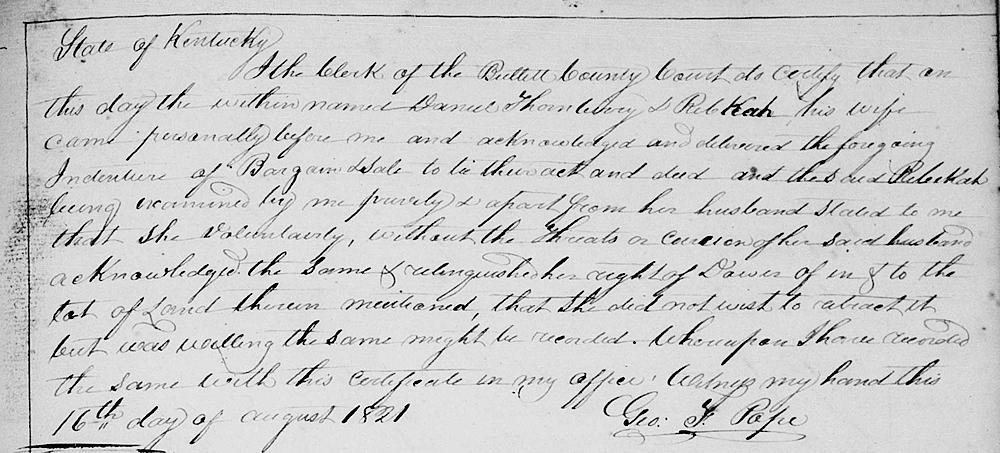 State of Kentucky
I the Clerk of the Bullett County Court do certify that on
this day the within named Daniel Thornberry & Rebekah his wife
came personally before me and acknowledged and delivered the foregoing
Indenture of Bargain & Sale to be their act and deed and the said Rebekah
being examined by me privily & apart from her husband stated to me
that she voluntarily, without the threats or coercion of her said husband
acknowledged the same & relinquished her right of Dower of in & to the
lot of Land therein mentioned, that she did not wish to retract it
but was willing the same might be recorded. Whereupon I have recorded
the same with this certificate in my office. Witness my hand this
16th day of august 1821
Geo: F. Pope